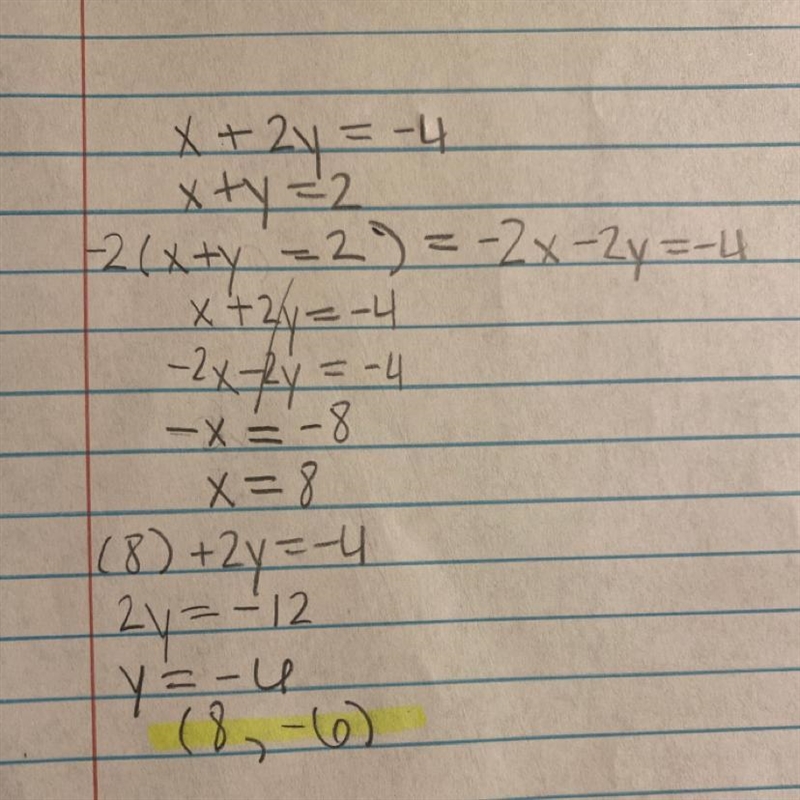 x + 2y = -4
x + y = 2
-2(x+y = 2) = -2x - 2y = -4
x + 2y = -4
-2x - 2y = -4
-x = -8
x = 8
(8) + 2y = -4
2y = -12
y = -4
(8, -6)